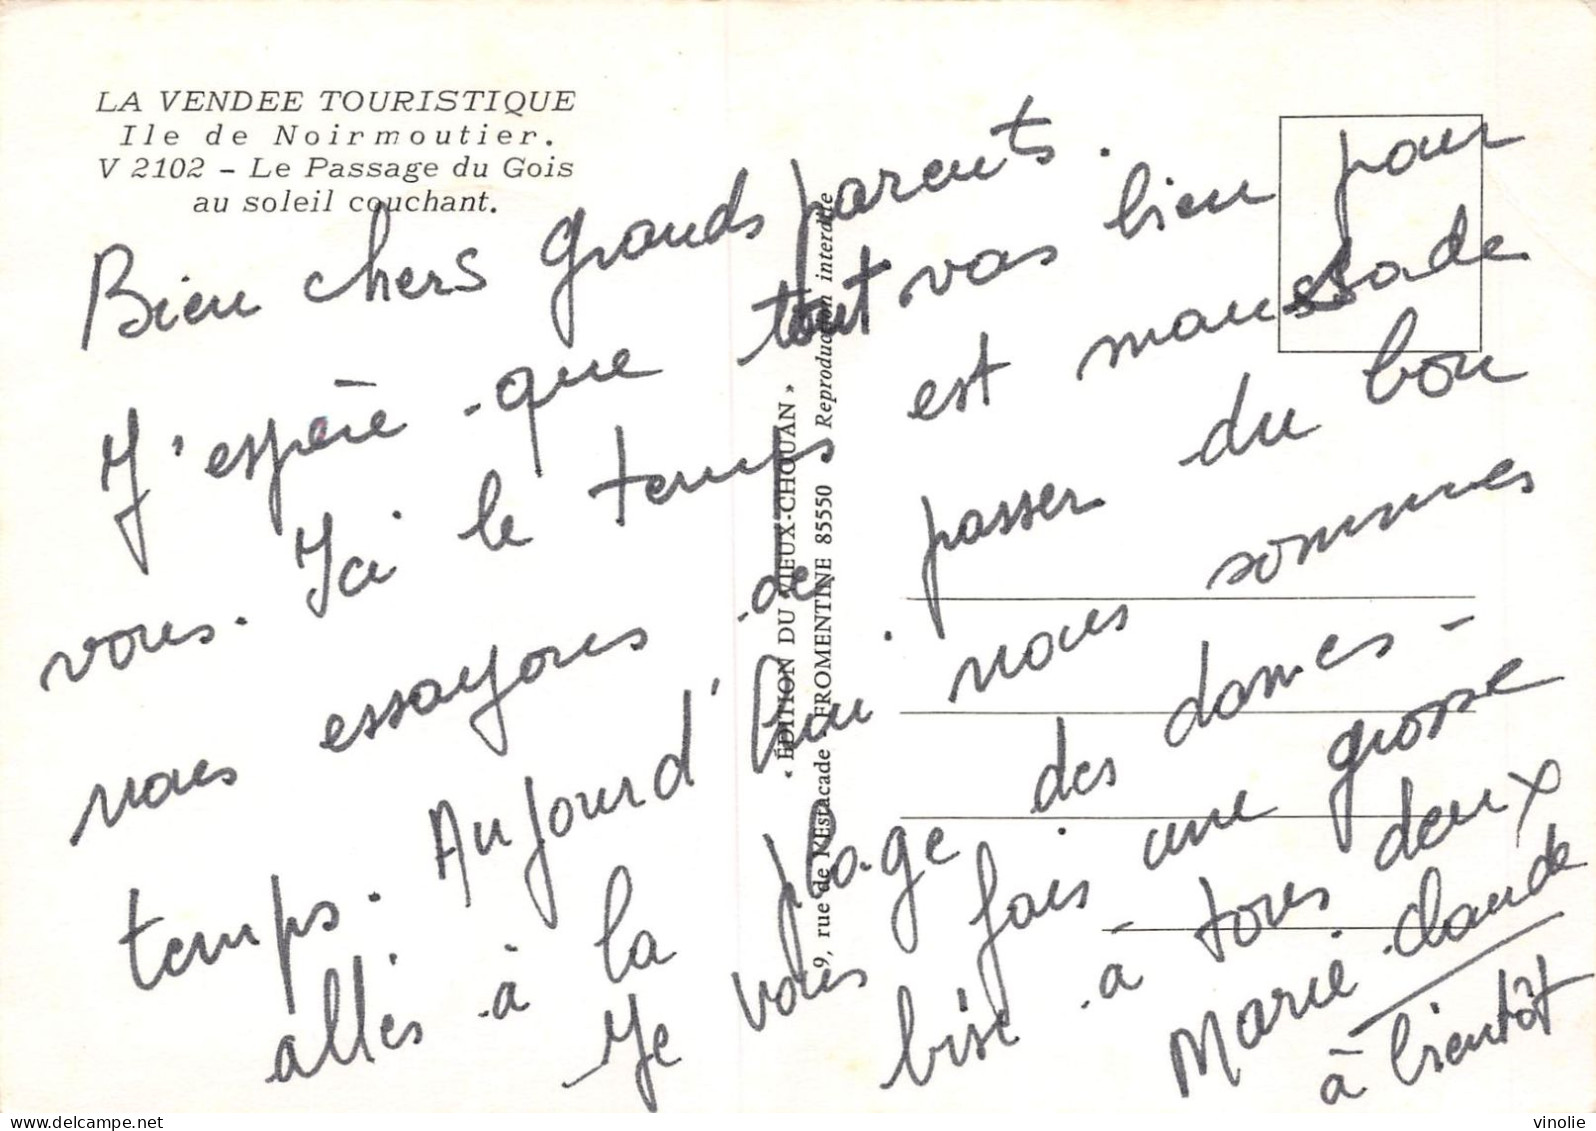 LA VENDEE TOURISTIQUE
Ile de Noirmoutier.
V 2102 - Le Passage du Gois
au soleil couchant.
Bien chers grands parents.
J'espère que tout vas bien pour
vous. Ici le temps est maussade
nous essayons de passer du bon
temps. Aujourd'hui nous sommes
allés à la plage des dames -
Je vous fais une grosse
bise à tous deux
Marie-claude
à bientôt
« ÉDITION DU VIEUX-CHOUAN »
9, rue de l'Estacade - FROMENTINE 85550 Reproduction interdite
delcampe.net
vinolie